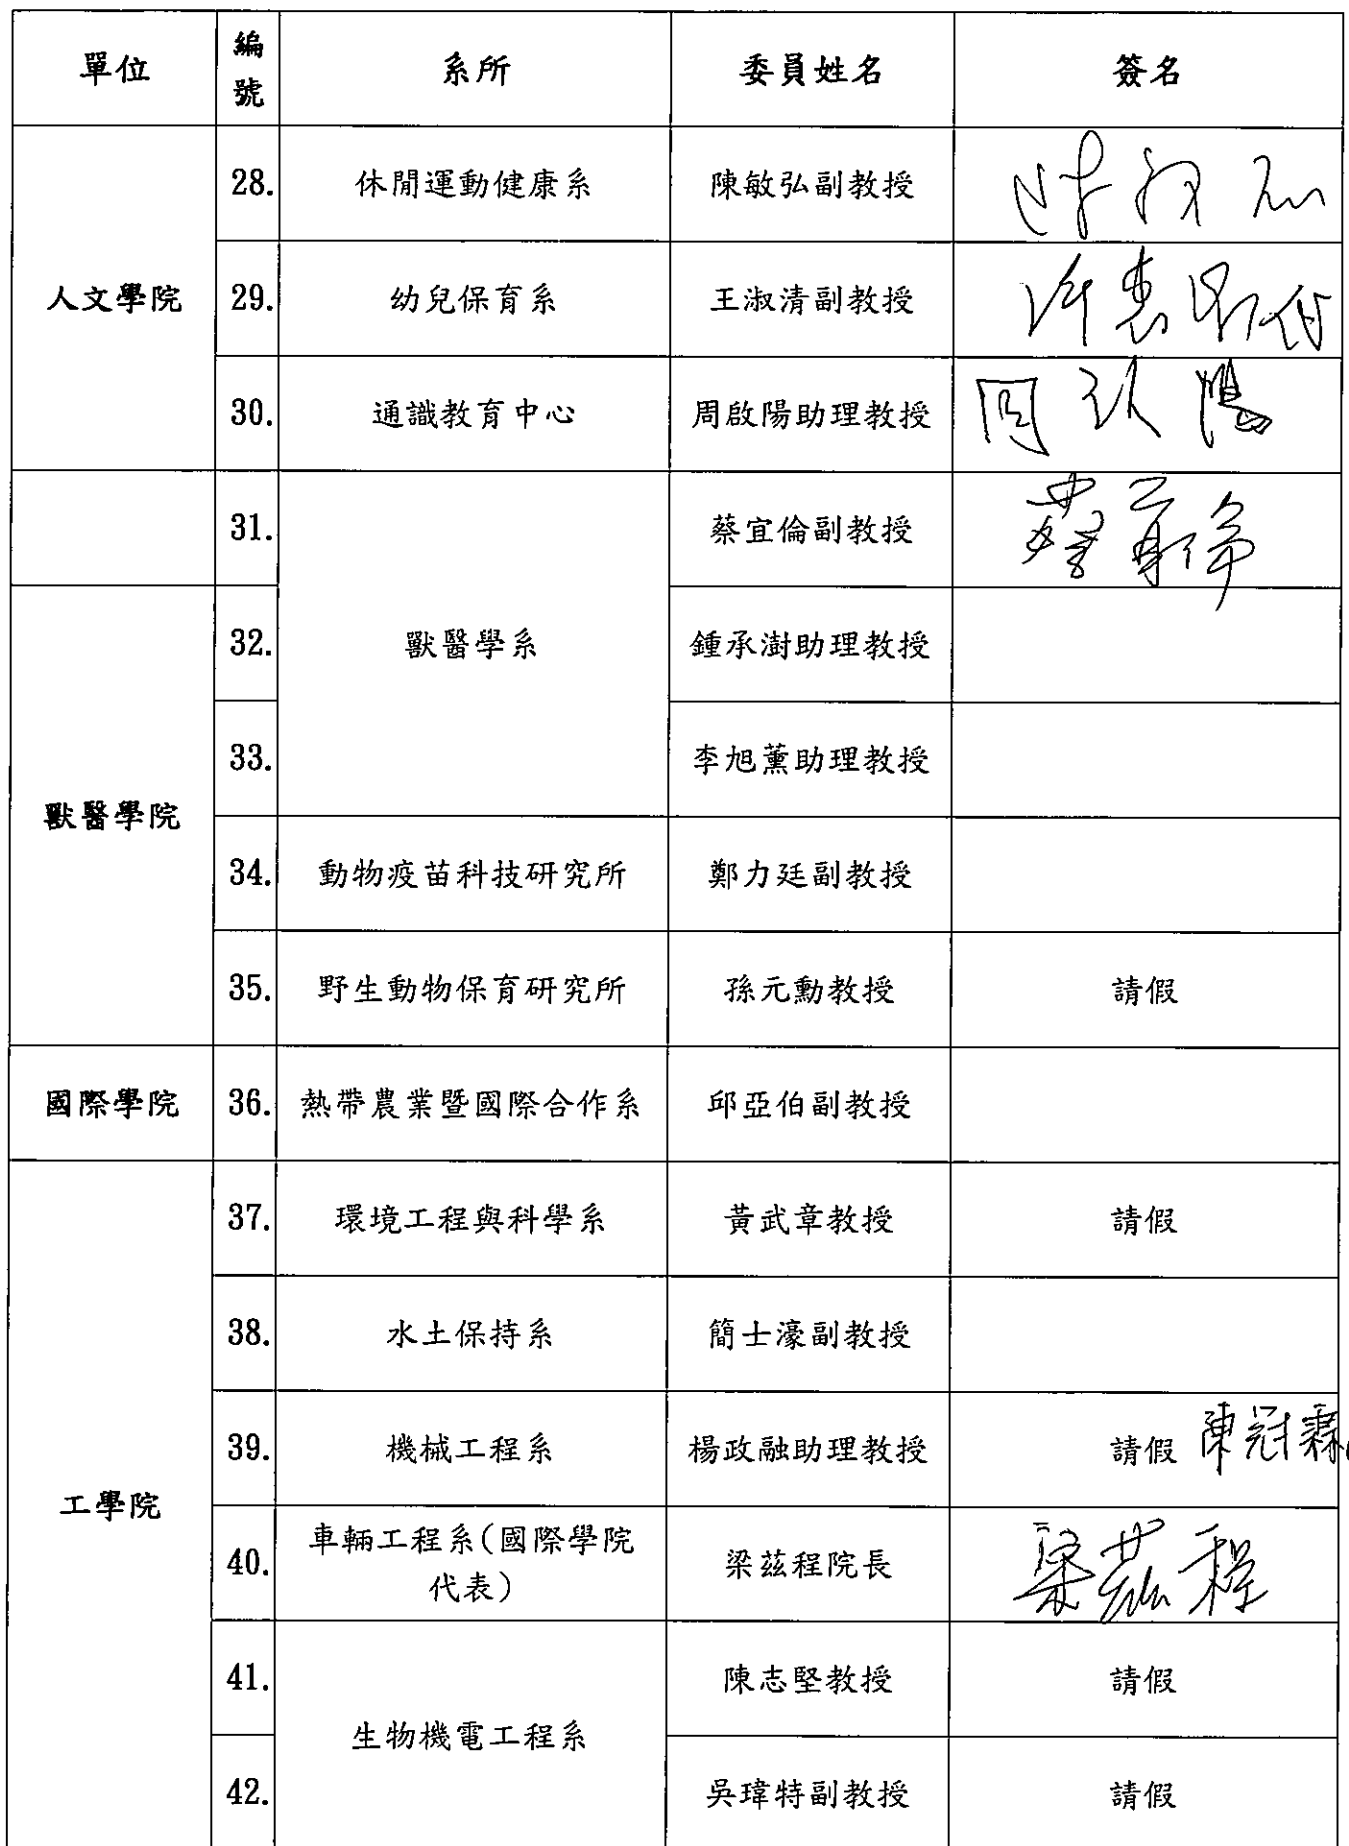 單位 編號 系所 委員姓名 簽名
人文學院
28. 休閒運動健康系 陳敏弘副教授 陳敏弘
29. 幼兒保育系 王淑清副教授
30. 通識教育中心 周啟陽助理教授 周啟陽
獸醫學院
31. 獸醫學系 蔡宜倫副教授 蔡宜倫
32. 鍾承澍助理教授
33. 李旭薰助理教授
34. 動物疫苗科技研究所 鄭力廷副教授
35. 野生動物保育研究所 孫元勳教授 請假
國際學院
36. 熱帶農業暨國際合作系 邱亞伯副教授
工學院
37. 環境工程與科學系 黃武章教授 請假
38. 水土保持系 簡士濠副教授
39. 機械工程系 楊政融助理教授 請假 陳冠霖
40. 車輛工程系(國際學院
代表) 梁茲程院長 梁茲程
41. 生物機電工程系 陳志堅教授 請假
42. 吳瑋特副教授 請假